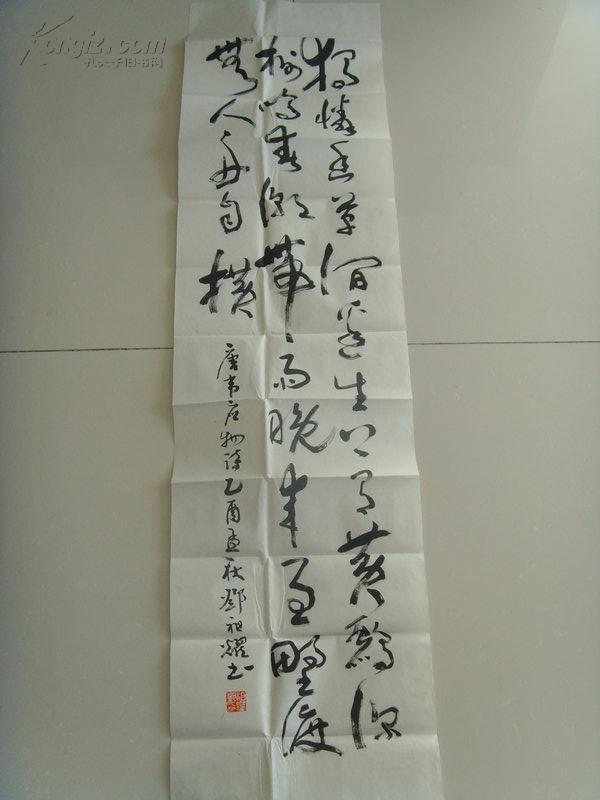 独怜幽草涧边生上有黄鹂深
树鸣春潮带雨晚来急野渡
无人舟自横
唐韦应物诗乙酉孟秋邓祖耀书
Kongfz.com
孔夫子旧书网